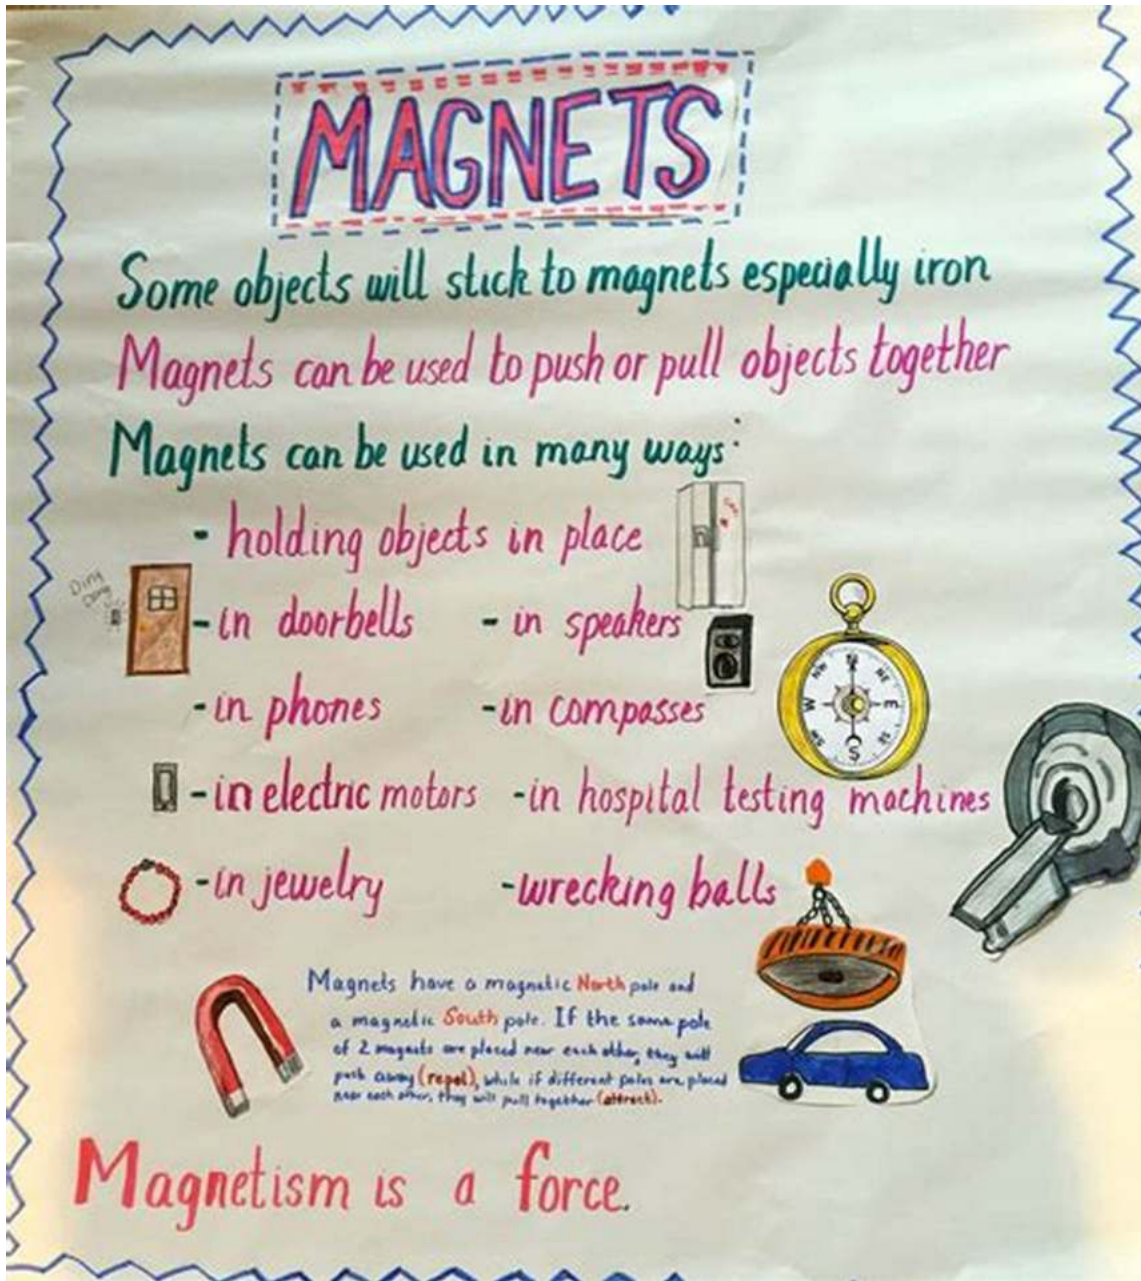 MAGNETS
Some objects will stick to magnets especially iron
Magnets can be used to push or pull objects together
Magnets can be used in many ways:
- holding objects in place
Ding
Dong
- in doorbells - in speakers
- in phones - in compasses
N
NE
E
SE
S
SW
W
NW
- in electric motors - in hospital testing machines
- in jewelry - wrecking balls
Magnets have a magnetic North pole and
a magnetic South pole. If the same pole
of 2 magnets are placed near each other, they will
push away (repel), while if different poles are placed
near each other, they will pull together (attract).
Magnetism is a force.